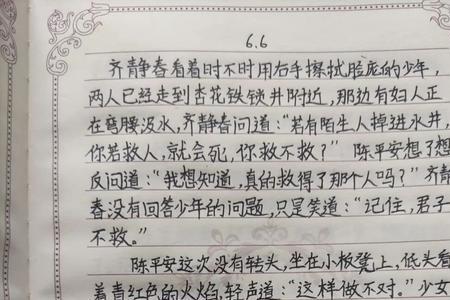 6.6
齐静春看着时不时用右手擦拭脸庞的少年，
两人已经走到杏花铁锁井附近，那边有妇人正
在弯腰汲水，齐静春问道：“若有陌生人掉进水井，
你若救人，就会死，你救不救？” 陈平安想了想
反问道：“我想知道，真的救得了那个人吗？”齐静
春没有回答少年的问题，只是笑道：“记住，君子
不救。”
陈平安这次没有转头，坐在小板凳上，低头看
着青红色的火焰，轻声道：“这样做不对。”少女